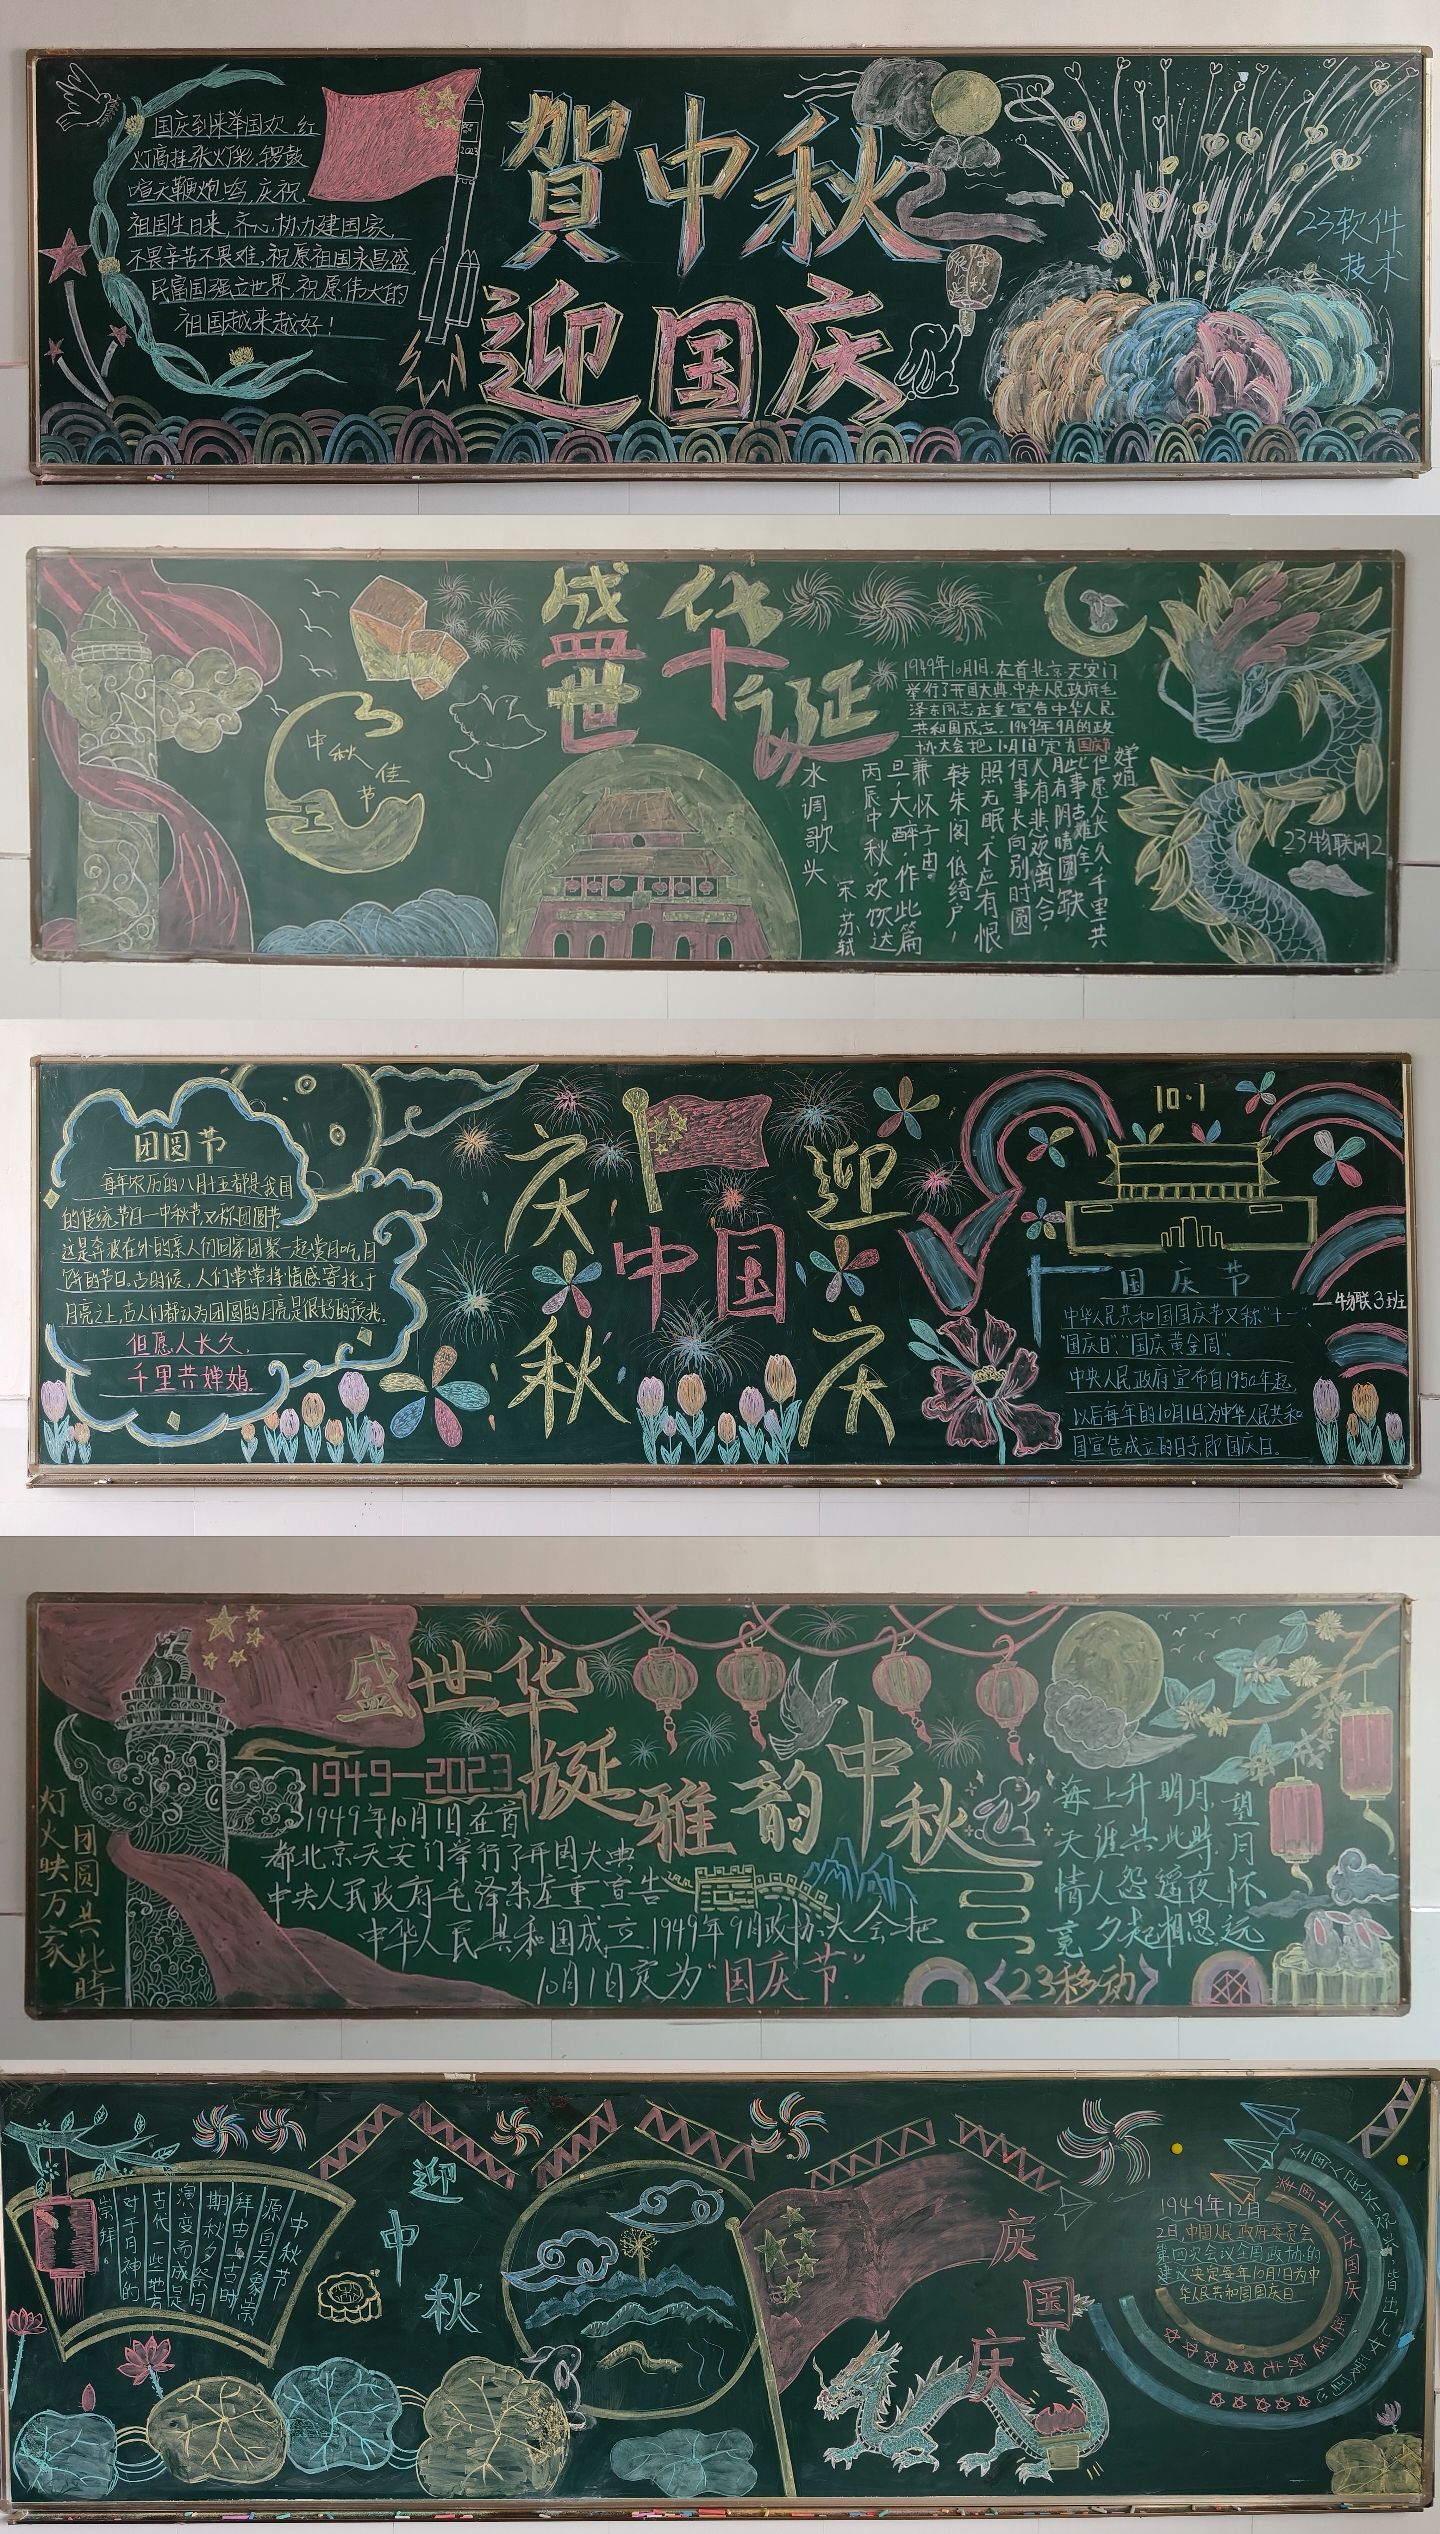 国庆到来举国欢,红
灯高挂张灯彩,锣鼓
喧天鞭炮鸣,庆祝
祖国生日来,齐心协力建国家,
不畏辛苦不畏难,祝愿祖国永昌盛,
民富国强立世界,祝愿伟大的
祖国越来越好!
2023
賀中秋
迎国庆
中秋
23软件
技术
中秋佳节
盛世
华诞
1949年10月1日,在首北京天安门
举行了开国大典,中央人民政府毛
泽东同志庄重宣告中华人民
共和国成立.1949年9月的政
协大会把10月1日定为国庆节
水调歌头
宋 苏轼
丙辰中秋,欢饮达
旦,大醉,作此篇
兼怀子由。
转朱阁,低绮户,
照无眠不应有恨
何事长向别时圆
人有悲欢离合,
月有阴晴圆缺
此事古难全
但愿人长久,千里共
婵娟
23物联网2
团圆节
每年农历的八月十五都是我国
的传统节日—中秋节,又称团圆节
这是奔波在外的亲人们回家团聚一起赏月吃月
饼的节日。古时候,人们常常将情感寄托于
月亮之上,古人们都认为团圆的月亮是很好的预兆.
但愿人长久,
千里共婵娟。
庆秋
中国
迎庆
10·1
国庆节
中华人民共和国国庆节又称"十一"、
"国庆日"、"国庆黄金周"。
中央人民政府宣布自1950年起,
以后每年的10月1日,为中华人民共和
国宣告成立的日子,即国庆日。
—物联3班
盛世华诞
雅韵中秋
灯火映万家
团圆共此時
1949—2023
1949年10月1日在首
都北京天安门举行了开国大典
中央人民政府毛泽东庄重宣告
中华人民共和国成立.1949年9月政协大会把
10月1日定为"国庆节".
海上升明月,
天涯共此時,
情人怨遥夜,
竟夕起相思,
望月怀远
〈23移动〉
中秋节
源自天象崇
拜由上古时
期秋夕祭月
演变而成是
古代一些地方
对于月神的
崇拜。
迎中秋
庆国庆
1949年12月
2日,中国人民政府委员会
第四次会议全国政协的
建议,决定每年10月1日为中
华人民共和国国庆日